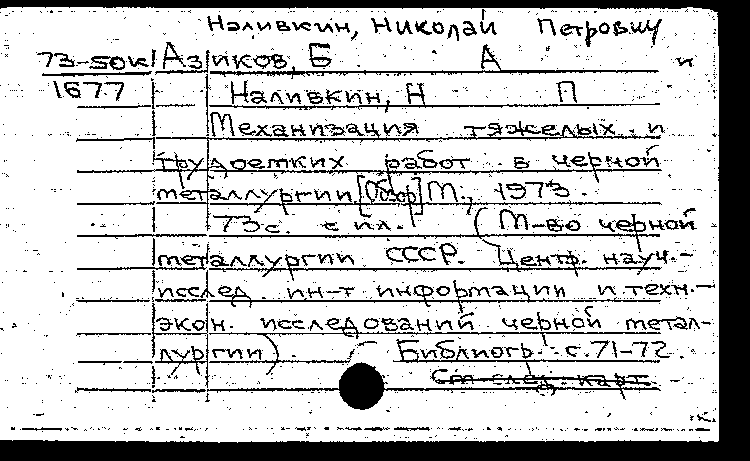 Наливкин, Николай Петрович
73-50к Азиков, Б А и
1677 Наливкин, Н П
Механизация тяжелых и
трудоемких работ в черной
металлургии [Обзор] М., 1973.
73с. с ил. (М-во черной
металлургии СССР. Центр. науч.-
исслед. ин-т информации и техн.-
экон. исследований черной метал-
лургии). Библиогр.: с. 71-72.
См след. карт.